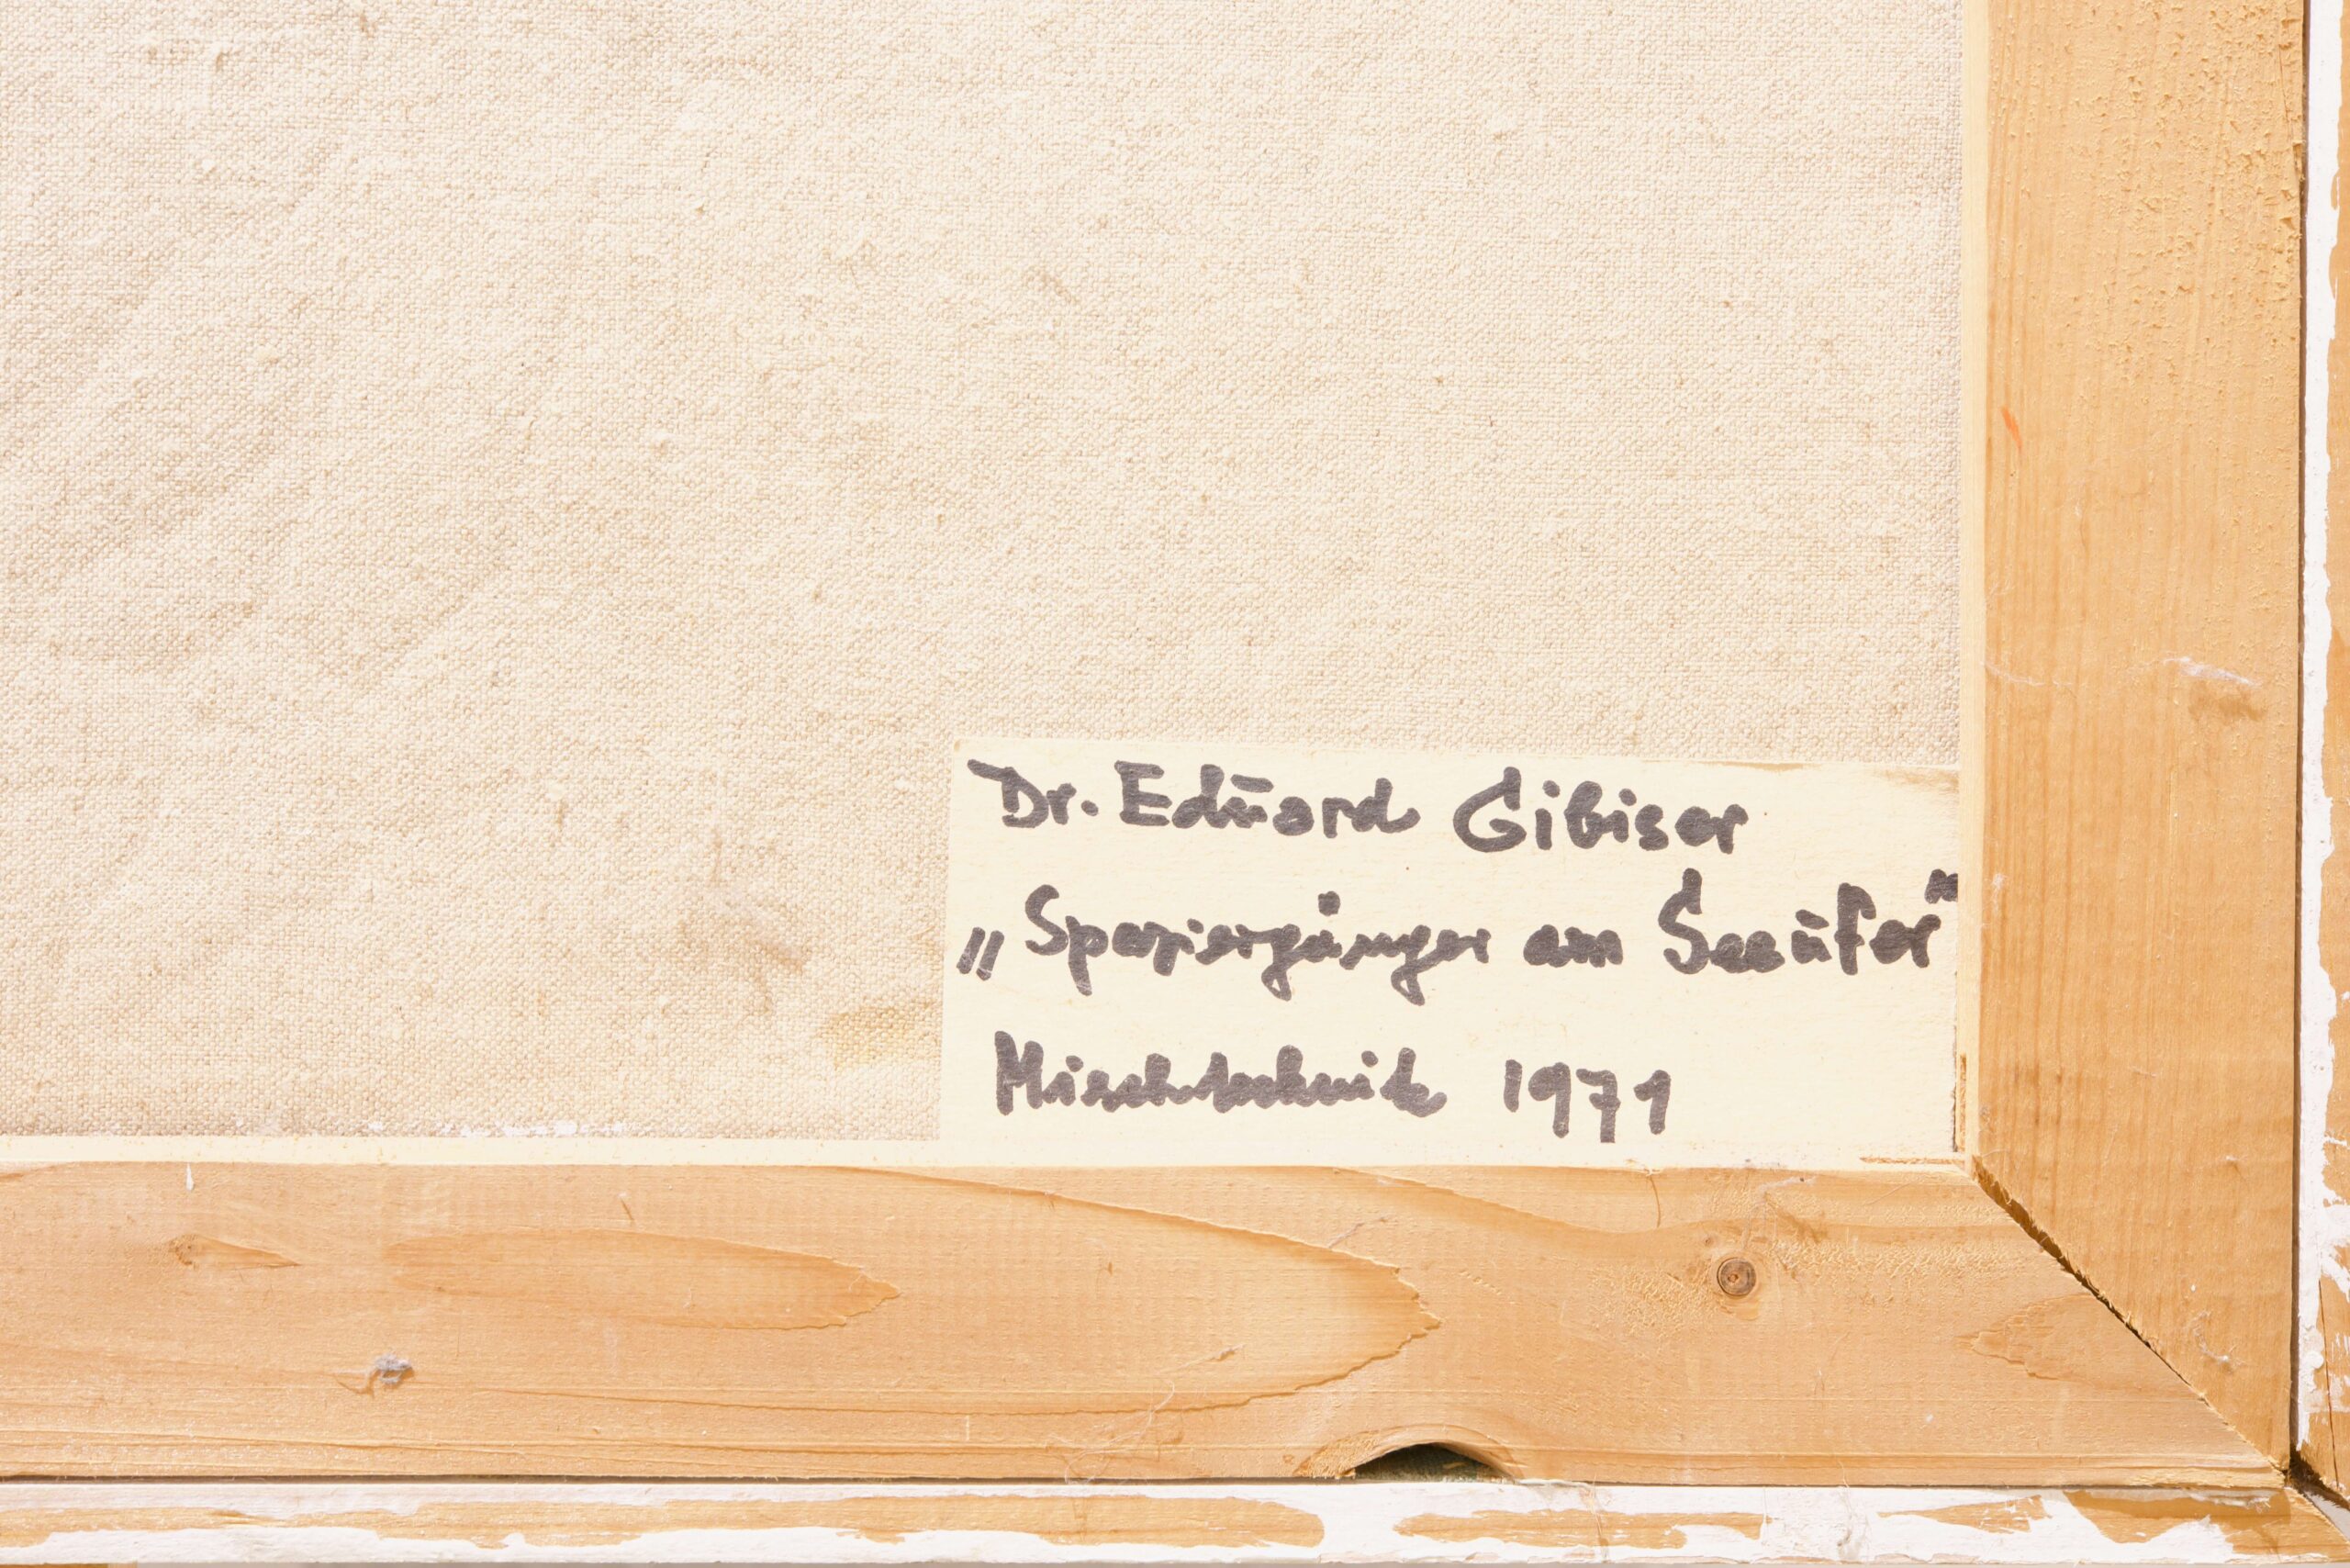 Dr. Eduard Gibiser
„Spaziergänger am Seeufer"
Mischtechnik 1971